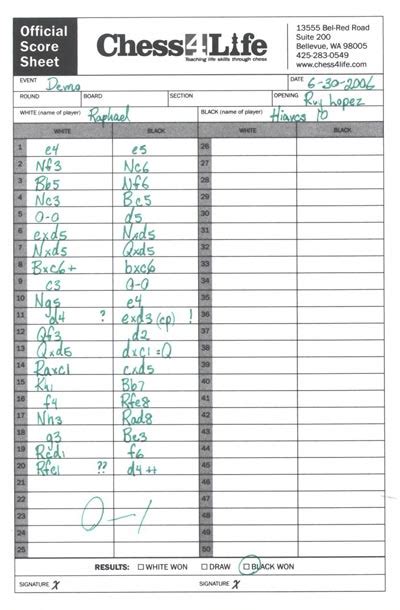 Official
Score
Sheet
Chess4Life
Teaching life skills through chess
13555 Bel-Red Road
Suite 200
Bellevue, WA 98005
425-283-0549
www.chess4life.com
EVENT Demo DATE 6-30-2006
ROUND BOARD SECTION OPENING Ruy Lopez
WHITE (name of player) Raphael BLACK (name of player) Hiarcs 10
WHITE BLACK WHITE BLACK
1 e4 e5 26
2 Nf3 Nc6 27
3 Bb5 Nf6 28
4 Nc3 Bc5 29
5 0-0 d5 30
6 exd5 Nxd5 31
7 Nxd5 Qxd5 32
8 Bxc6+ bxc6 33
9 c3 0-0 34
10 Ng5 e4 35
11 d4 ? exd3 (ep) ! 36
12 Qf3 d2 37
13 Qxd5 dxc1=Q 38
14 Raxc1 cxd5 39
15 Kh1 Bb7 40
16 f4 Rfe8 41
17 Nh3 Rad8 42
18 g3 Be3 43
19 Rcd1 f6 44
20 Rfe1 ?? d4++ 45
21 46
22 47
23 0-1 48
24 49
25 50
RESULTS: WHITE WON DRAW BLACK WON
SIGNATURE X SIGNATURE X